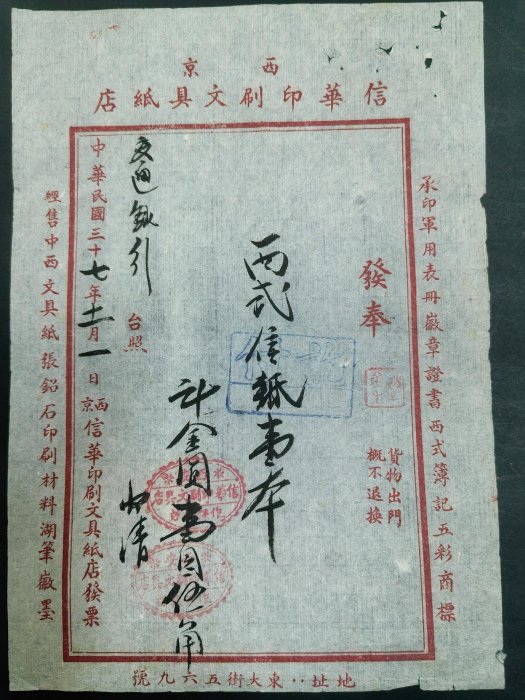 西京
信華印刷文具紙店
承印軍用表冊徽章證書西式簿記五彩商標
發奉
貨物出門
概不退換
西式信紙壹本
計金圓壹圓伍角
付清
交通銀行
台照
中華民國三十七年十一月一日
西京信華印刷文具紙店發票
經售中西文具紙張鉛石印刷材料湖筆徽墨
地址：東大街五六九號